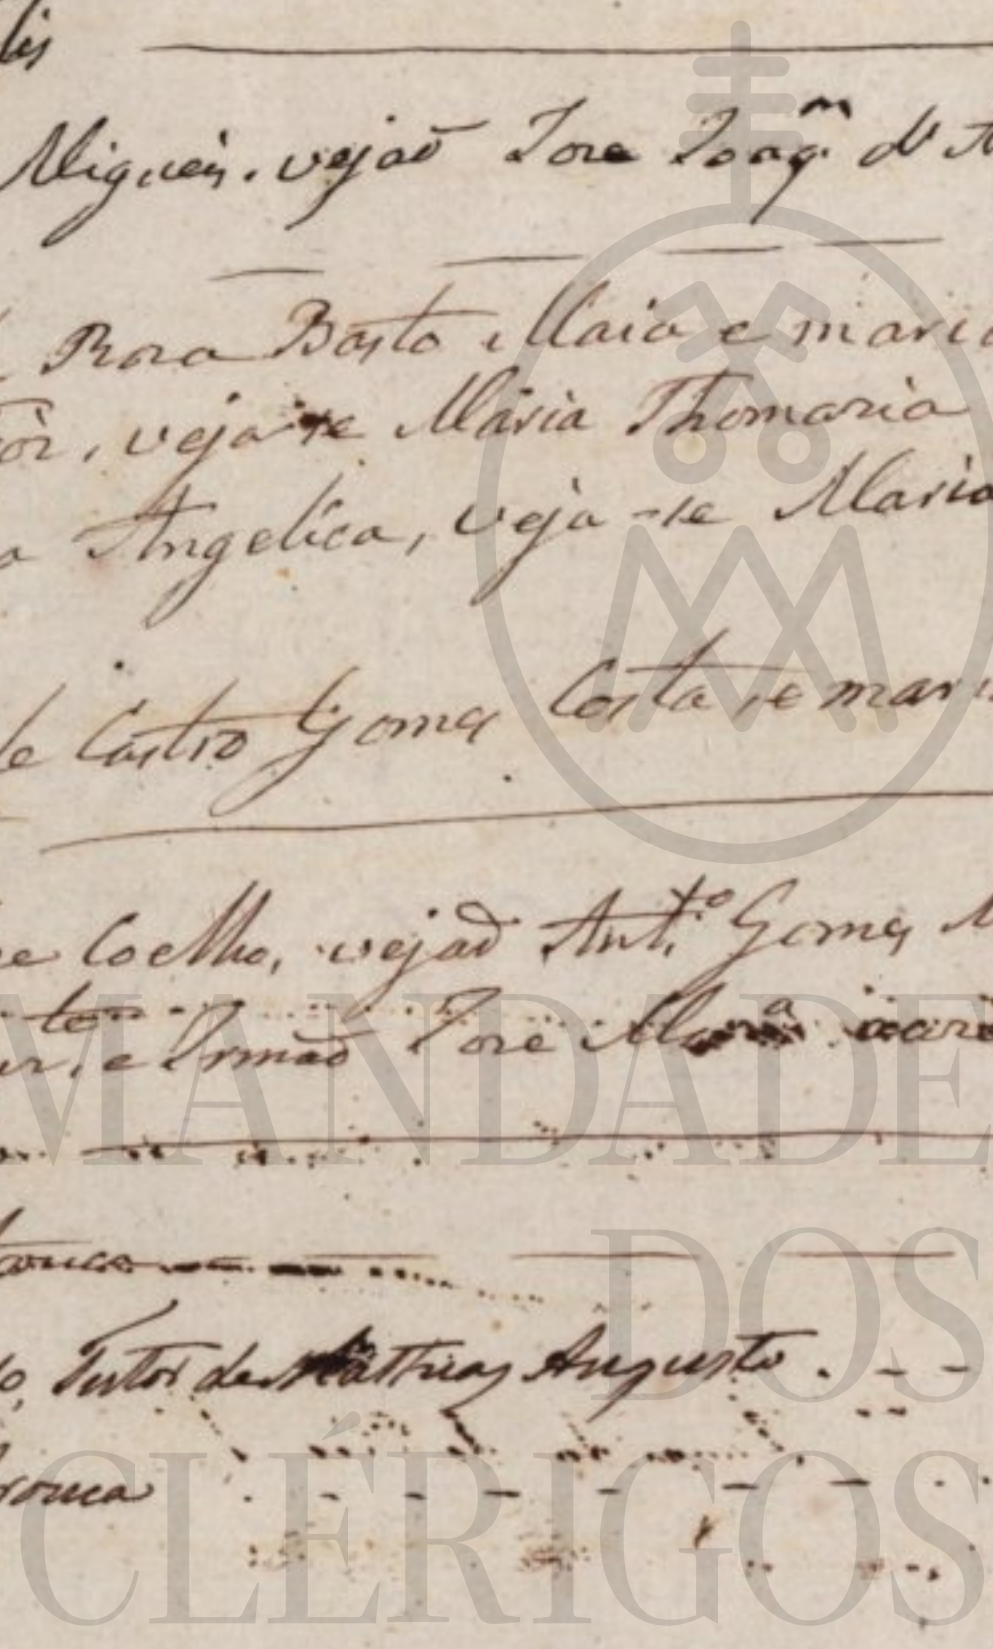 lis
Miguéis. vejaõ Jose Joaq.m d'A
Rosa Basto Maia e mari
ôr, veja-se Maria Thomazia
a Angelica, veja-se Maria
de Castro Gomes Costa, e mari
Coelho, vejaõ Ant.to Gomes M
e Irmaõ Jose Mor.a
Tutor de Mathias Augusto
rouca
MANDADE
DOS
CLÉRIGOS